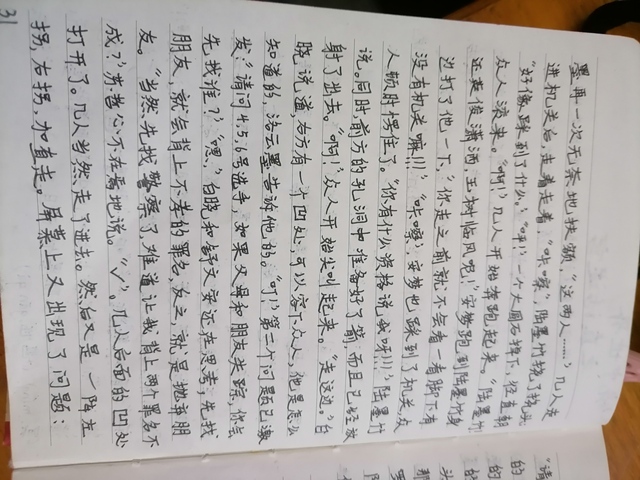 墨再一次无奈地扶额，“这两人……”几人走
进机关后，走着走着，“咔嚓”，陆墨竹挠了挠头，
“好像踩到了什么。”“砰！”一个大圆石掉下，径直朝
众人滚来。“啊！”几人开始奔跑起来。“陆墨竹
还英俊潇洒，玉树临风呢！”安梦跑到陆墨竹身
边打了他一下，“你走之前就不会看一看脚下有
没有机关嘛！！！”“咔嚓”，安梦也踩到了机关，众
人顿时愣住了。“你有什么资格说我呀！！！”陆墨竹
说。同时，前方的孔洞中准备好了箭，而且已经放
射了出去。“啊！”众人开始尖叫起来。“走这边。”白
晓说道，右方有一个凹处，可以容下众人，他是怎么
知道的，洛云墨告诉他的。“叮！”第三个问题已激
发：“请问4，5，6号选手，如果父母和朋友失踪，你会
先找谁？”“嗯，”白晓和舒文安还在思考，先找
朋友，就会背上不孝的罪名，反之，就是抛弃朋
友。“当然先找警察了，难道让我背上两个罪名不
成？”苏哲心不在焉地说。“√”。几人后面的凹处
打开了。几人当然走了进去。然后又是一阵左
拐，右拐，加直走。屏幕上又出现了问题：
31
“请
的